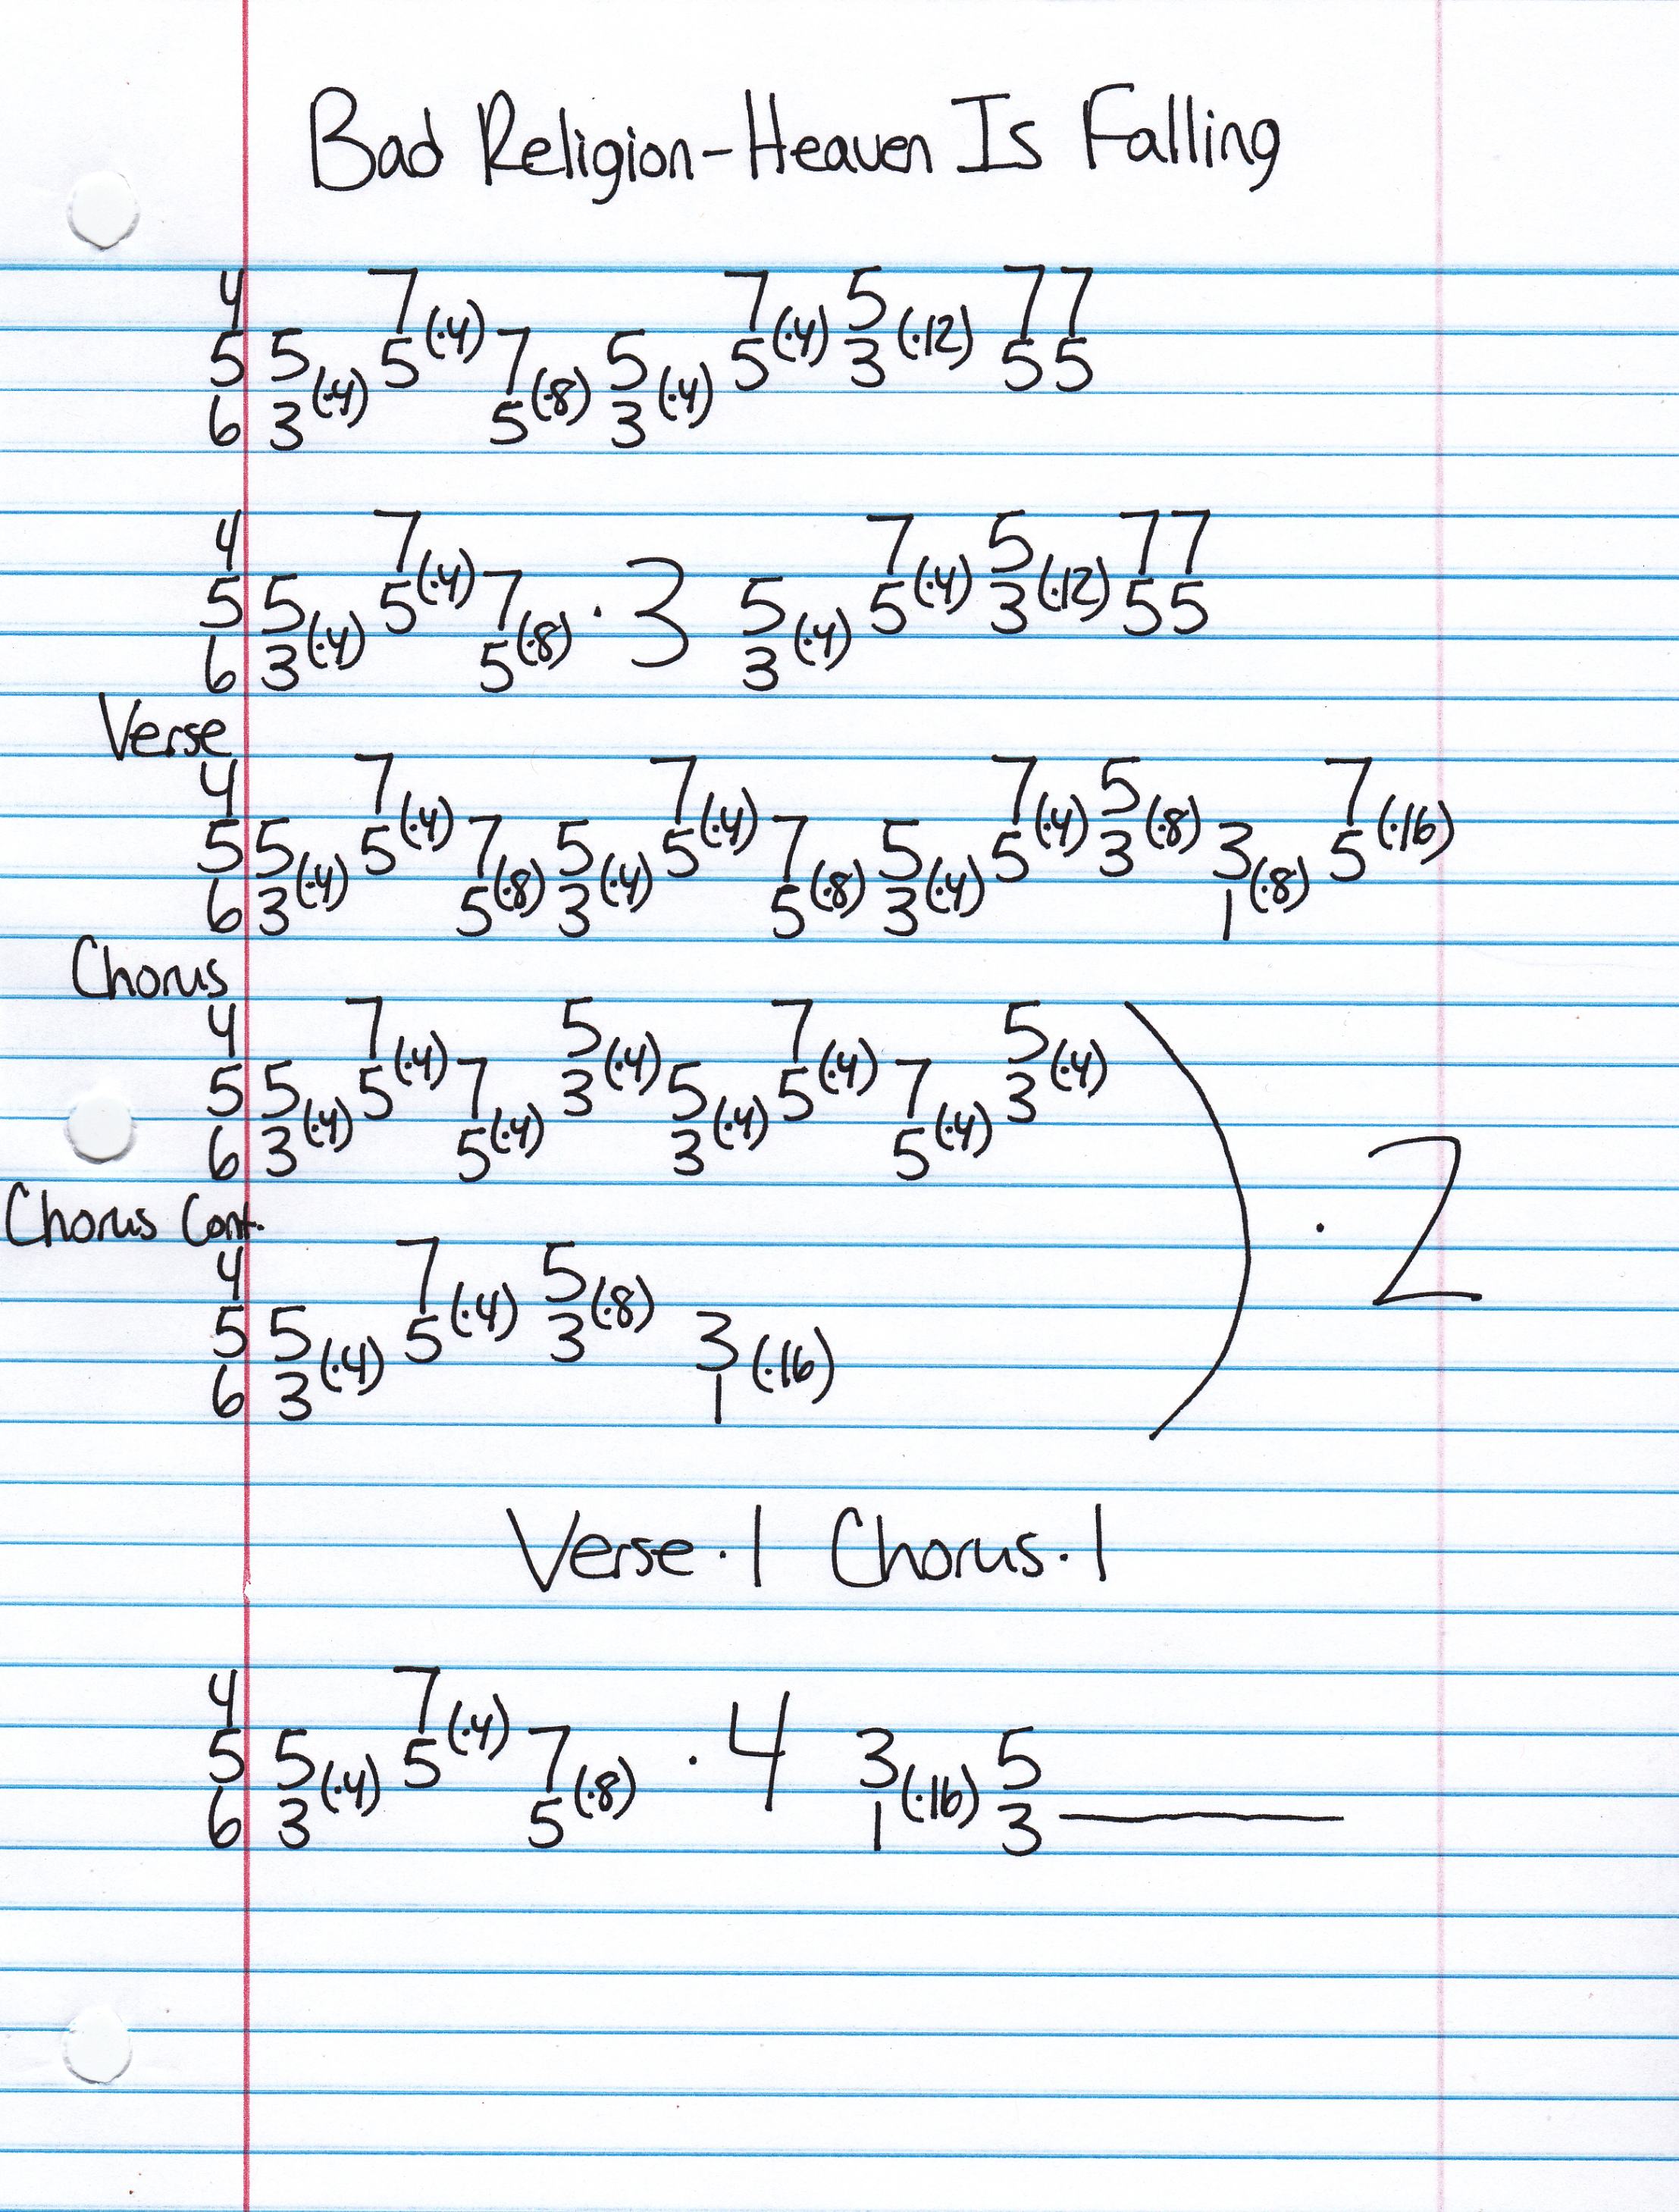 Bad Religion-Heaven Is Falling
4 7 7 5 77
5 5 (·4) 5 (·4) 7 5 (·4) 5 (·4) 3 (·12) 55
6 3 5 (·8) 3
4 7 7 5 77
5 5 (·4) 5 (·4) 7 ·3 5 (·4) 5 (·4) 3 (·12) 55
6 3 5 (·8) 3
Verse
4 7 7 7 5 7
5 5 (·4) 5 (·4) 7 5 (·4) 5 (·4) 7 5 (·4) 5 (·4) 3 (·8) 3 5 (·16)
6 3 5 (·8) 3 5 (·8) 3 1 (·8)
Chorus
4 7 5 7 5
5 5 (·4) 5 (·4) 7 3 (·4) 5 (·4) 5 (·4) 7 3 (·4)
6 3 5 (·4) 3 5 (·4)
Chorus Cont.
4 7 5 ·2
5 5 (·4) 5 (·4) 3 (·8) 3 (·16)
6 3 1
Verse·1 Chorus·1
4 7
5 5 (·4) 5 (·4) 7 ·4 3 (·16) 5
6 3 5 (·8) 1 3